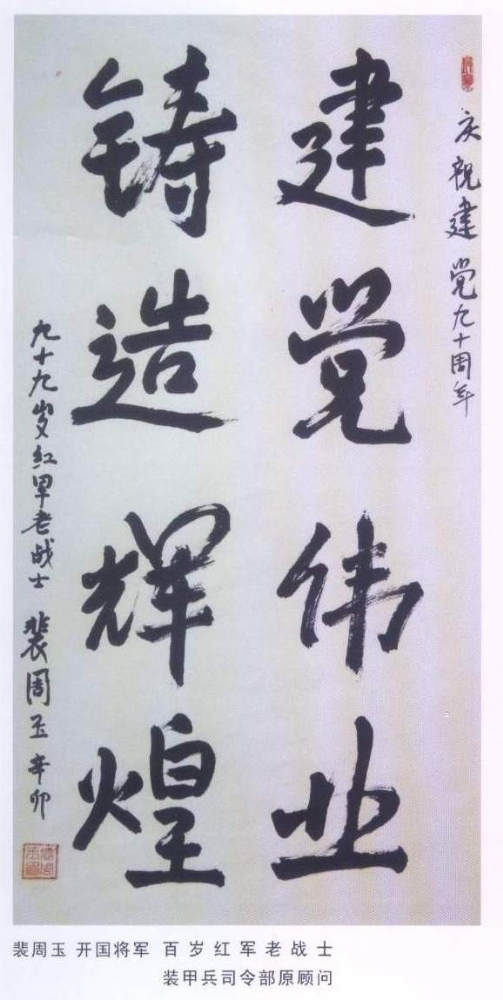 庆祝建党九十周年
建党伟业
铸造辉煌
九十九岁红军老战士 裴周玉 辛卯
裴周玉 开国将军 百岁红军老战士
装甲兵司令部原顾问